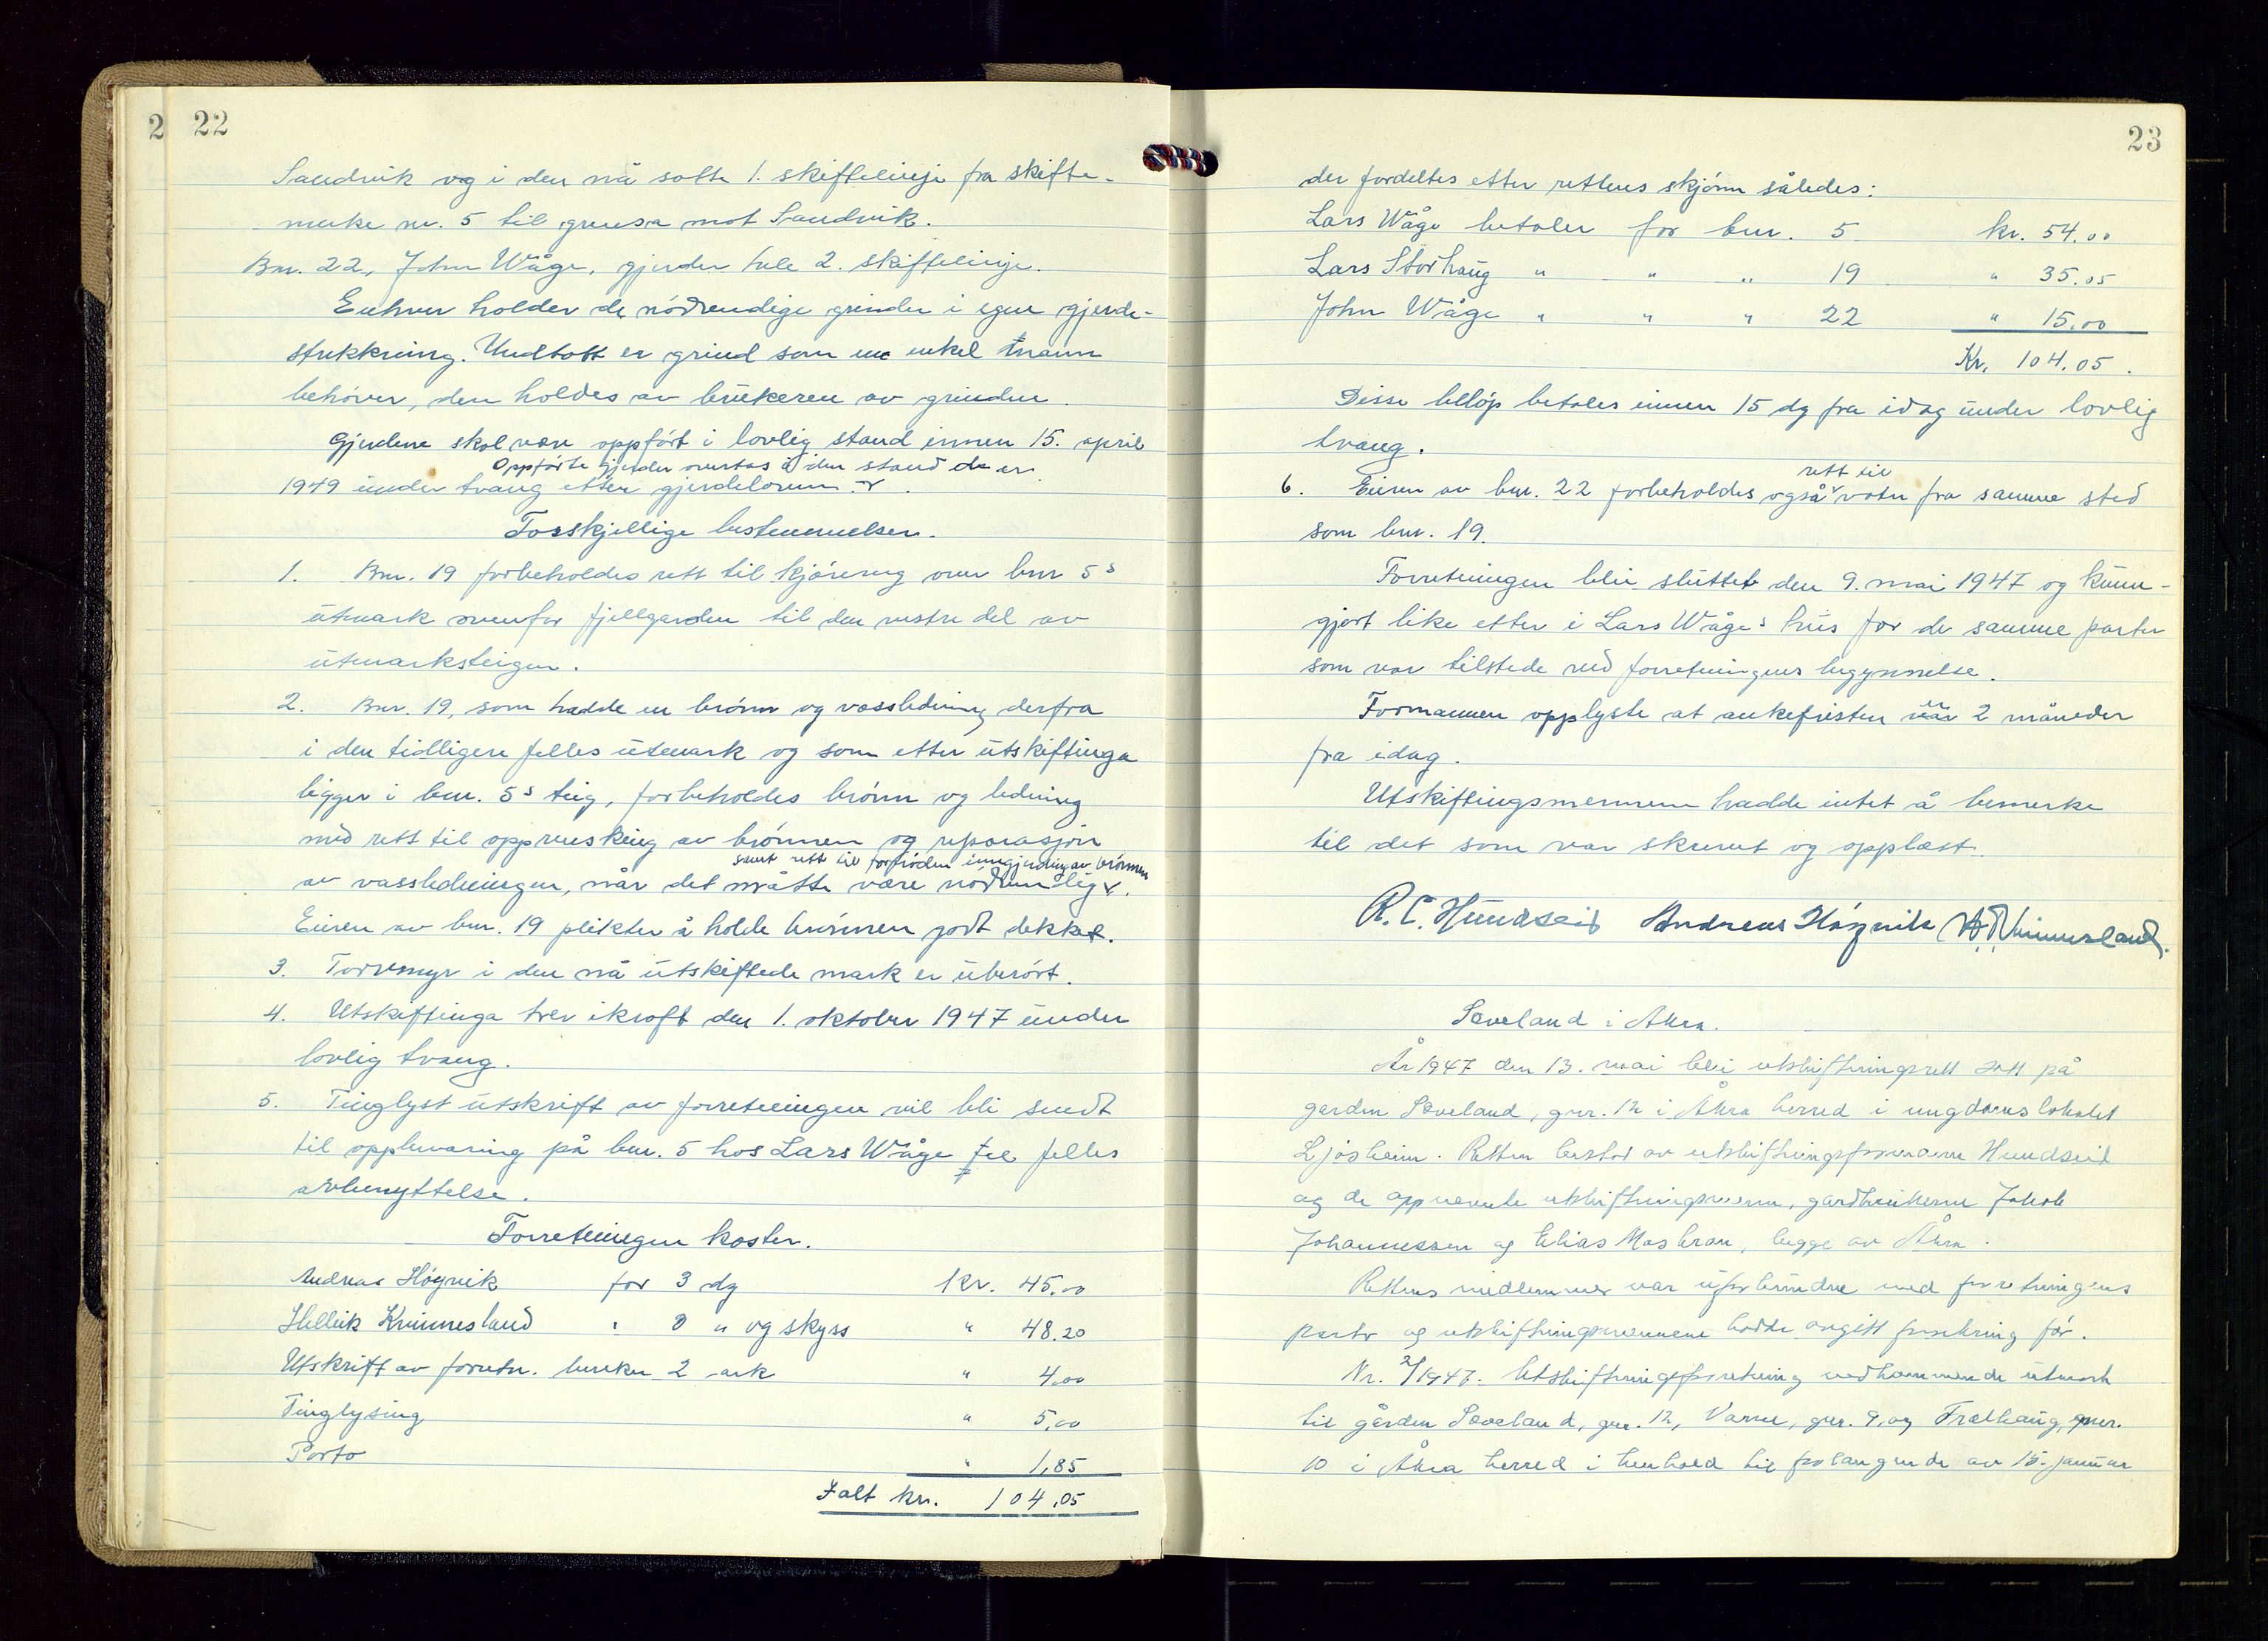 2 22
Sandvik og i den nå satte 1. skiftelinje fra skifte-
merke nr. 5 til grensa mot Sandvik.
Bnr. 22, John Wåge, gjerder hele 2. skiftelinje.
Enhver holder de nödvendige grinder i egen gjerde-
strekkning. Undtatt er grind som en enkel mann
behöver, den holdes av brukeren av grinden.
Gjerdene skal være oppfört i lovlig stand innen 15. april
Oppförte gjerder overtas i den stand de er.
1949 under tvang etter gjerdeloven.
Forskjellige bestemmelser.
1. Bnr. 19 forbeholdes rett til kjöring over bnr 5s
utmark ovenfor fjellgarden til den vestre del av
utmarksteigen.
2. Bnr. 19, som hadde en brönn og vassledning derfra
i den tidligere felles utmark og som etter utskiftinga
ligger i bnr. 5s teig, forbeholdes brönn og ledning
med rett til opprensking av brönnen og reparasjon
samt rett til forsvoden inngjerding av brönnen
av vassledningen, når det måtte være nödvendig.
Eieren av bnr. 19 plikter å holde brönnen godt dekket.
3. Torvmyr i den nå utskiftede mark er uberört.
4. Utskiftinga trer ikraft den 1. oktober 1947 under
lovlig tvang.
5. Tinglyst utskrift av forretningen vil bli sendt
til oppbevaring på bnr. 5 hos Lars Wåge til felles
avbenyttelse.
Forretningen koster.
Andreas Högnik for 3 dg Kr. 45.00
Hellik Kvinnesland " 3 " og skyss " 48.20
Utskrift av forretn. bereknet 2 ark " 4,00
Tinglysing " 5,00
Porto " 1,85
Ialt kr. 104,05
23
der fordeltes etter rettens skjönn således:
Lars Wåge betaler for bnr. 5 kr. 54.00
Lars Storhaug " " " 19 " 35.05
John Wåge " " " 22 " 15,00
Kr. 104.05.
Disse belöp betales innen 15 dg fra idag under lovlig
tvang.
rett til
6. Eieren av bnr. 22 forbeholdes også vatn fra samme sted
som bnr. 19.
Forretningen blei sluttet den 9. mai 1947 og kunn-
gjort like etter i Lars Wåges hus for de samme parter
som var tilstede ved forretningens begynnelse.
er
Formannen opplyste at ankefristen var 2 måneder
fra idag.
Utskiftingsmennene hadde intet å bemerke
til det som var skrevet og opplæst.
R. C. Hundseid Andreas Högnik H. Kvinnesland.
Sæveland i Åkra.
År 1947 den 13. mai blei utskiftningsrett satt på
garden Sæveland, gnr. 12 i Åkra herred i ungdomslokalet
Ljosheim. Retten bestod av utskiftningsformann Hundseid
og de oppnevnte utskiftningsmenn, gardbrukerne Jakob
Johannessen og Elias Mosbron, begge av Åkra.
Rettens medlemmer var uforbundne med forretningens
parter og utskiftningsmennene hadde avgitt forsikring för.
Nr. 2/1947. Utskiftningsforretning vedkommende utmark
til gården Sæveland, gnr. 12, Varne, gnr. 9, og Trælhaug, gnr.
10 i Åkra herred i henhold til forlangende av 15. januar